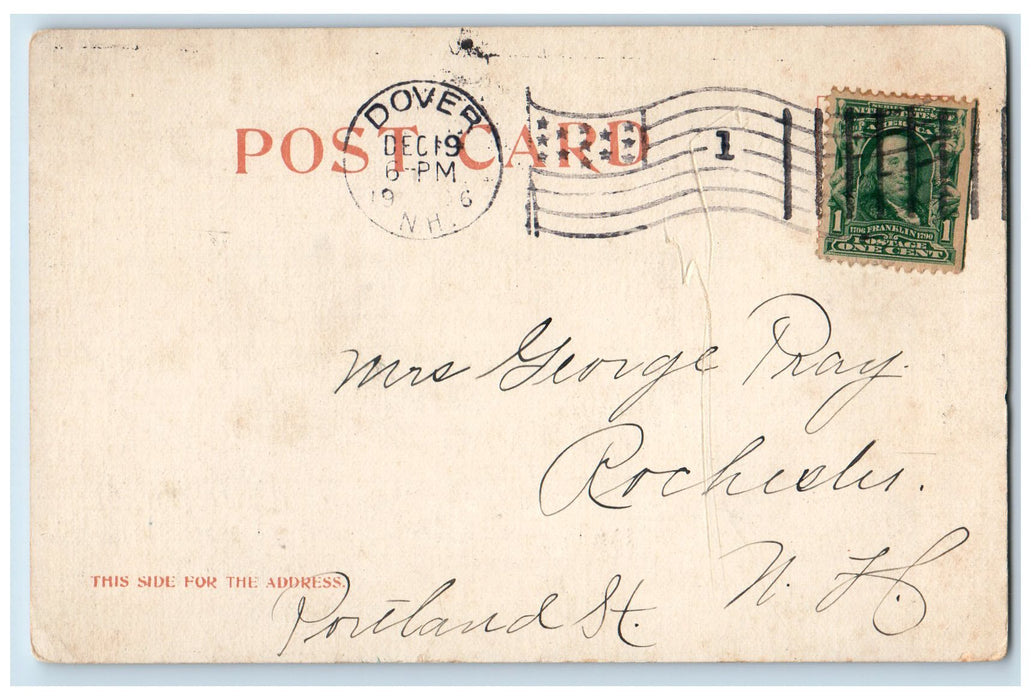 POST CARD
DOVER
DEC 19
6-PM
19 6
N.H.
1
SERIES 1902
UNITED STATES
OF AMERICA
1706 FRANKLIN 1790
1 POSTAGE 1
ONE CENT
Mrs George Pray.
Rochester.
N. H.
Portland St.
THIS SIDE FOR THE ADDRESS.